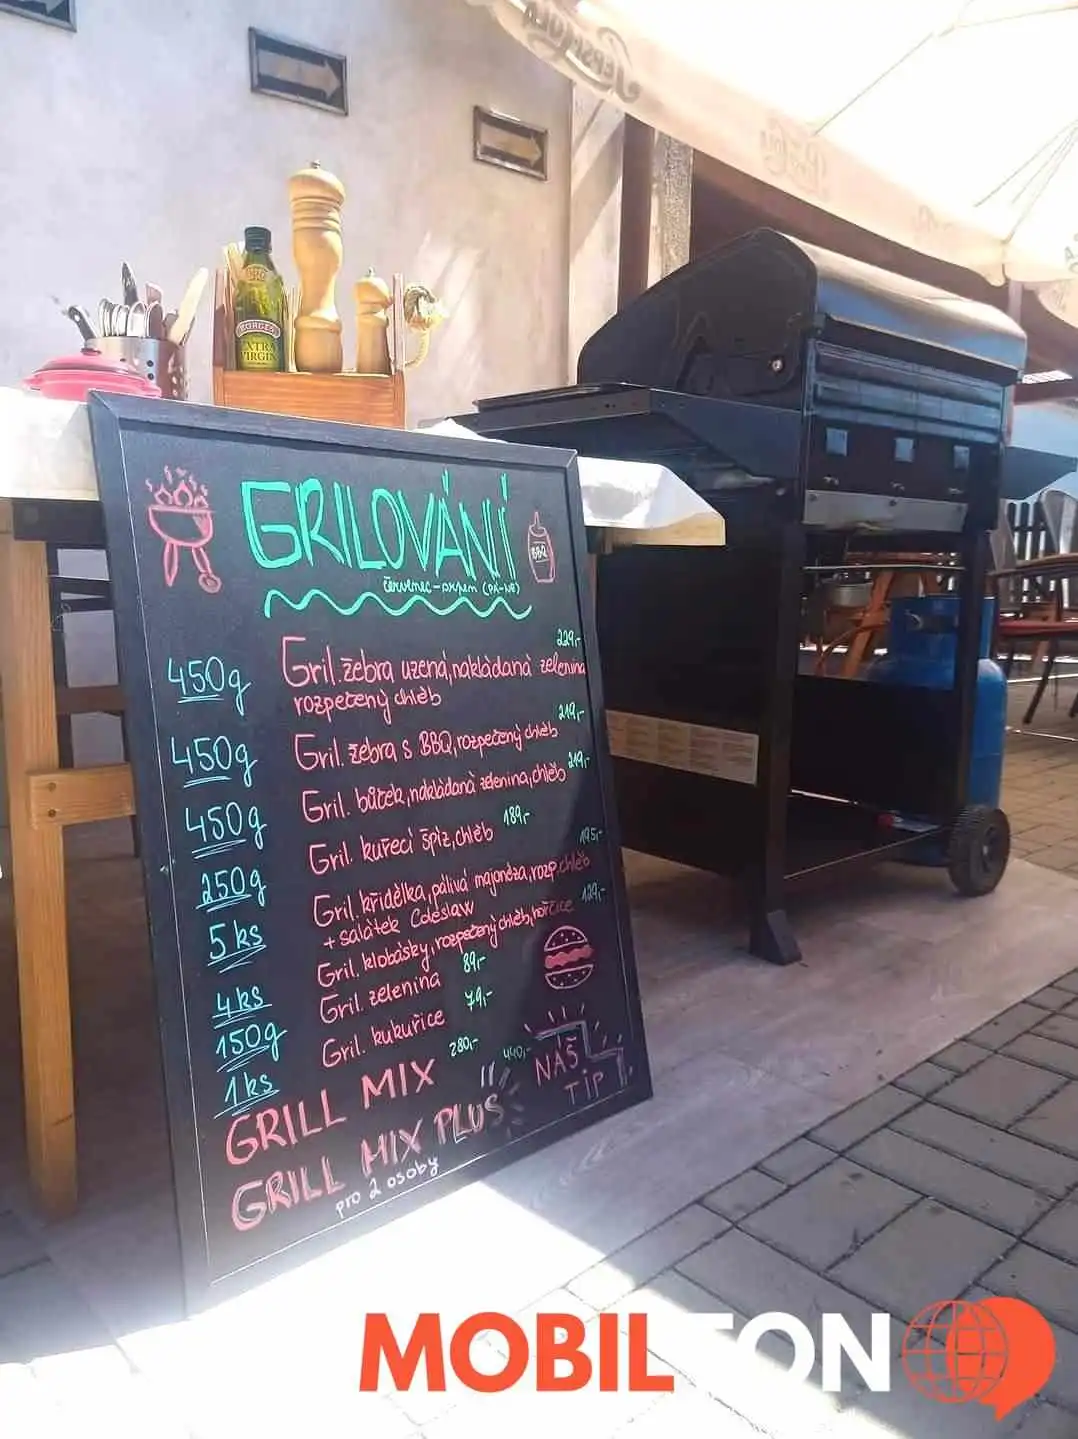 BORGES
EXTRA
VIRGIN
GRILOVÁNÍ
BBQ
červenec-srpen (PÁ-NE)
229,-
450g Gril. žebra uzená, nakládaná zelenina
rozpečený chléb
219,-
450g Gril. žebra s BBQ, rozpečený chléb
219,-
450g Gril. bůček, nakládaná zelenina, chléb
189,-
250g Gril. kuřecí špíz, chléb
195,-
5 ks Gril. křidélka, pálivá majonéza, rozp. chléb
+ salátek Coleslaw
129,-
4 ks Gril. klobásky, rozpečený chléb, hořčice
150g Gril. zelenina 89,-
1 ks Gril. kukuřice 79,-
GRILL MIX 280,-
GRILL MIX PLUS 440,-
pro 2 osoby
NÁŠ
TIP
MOBILTON